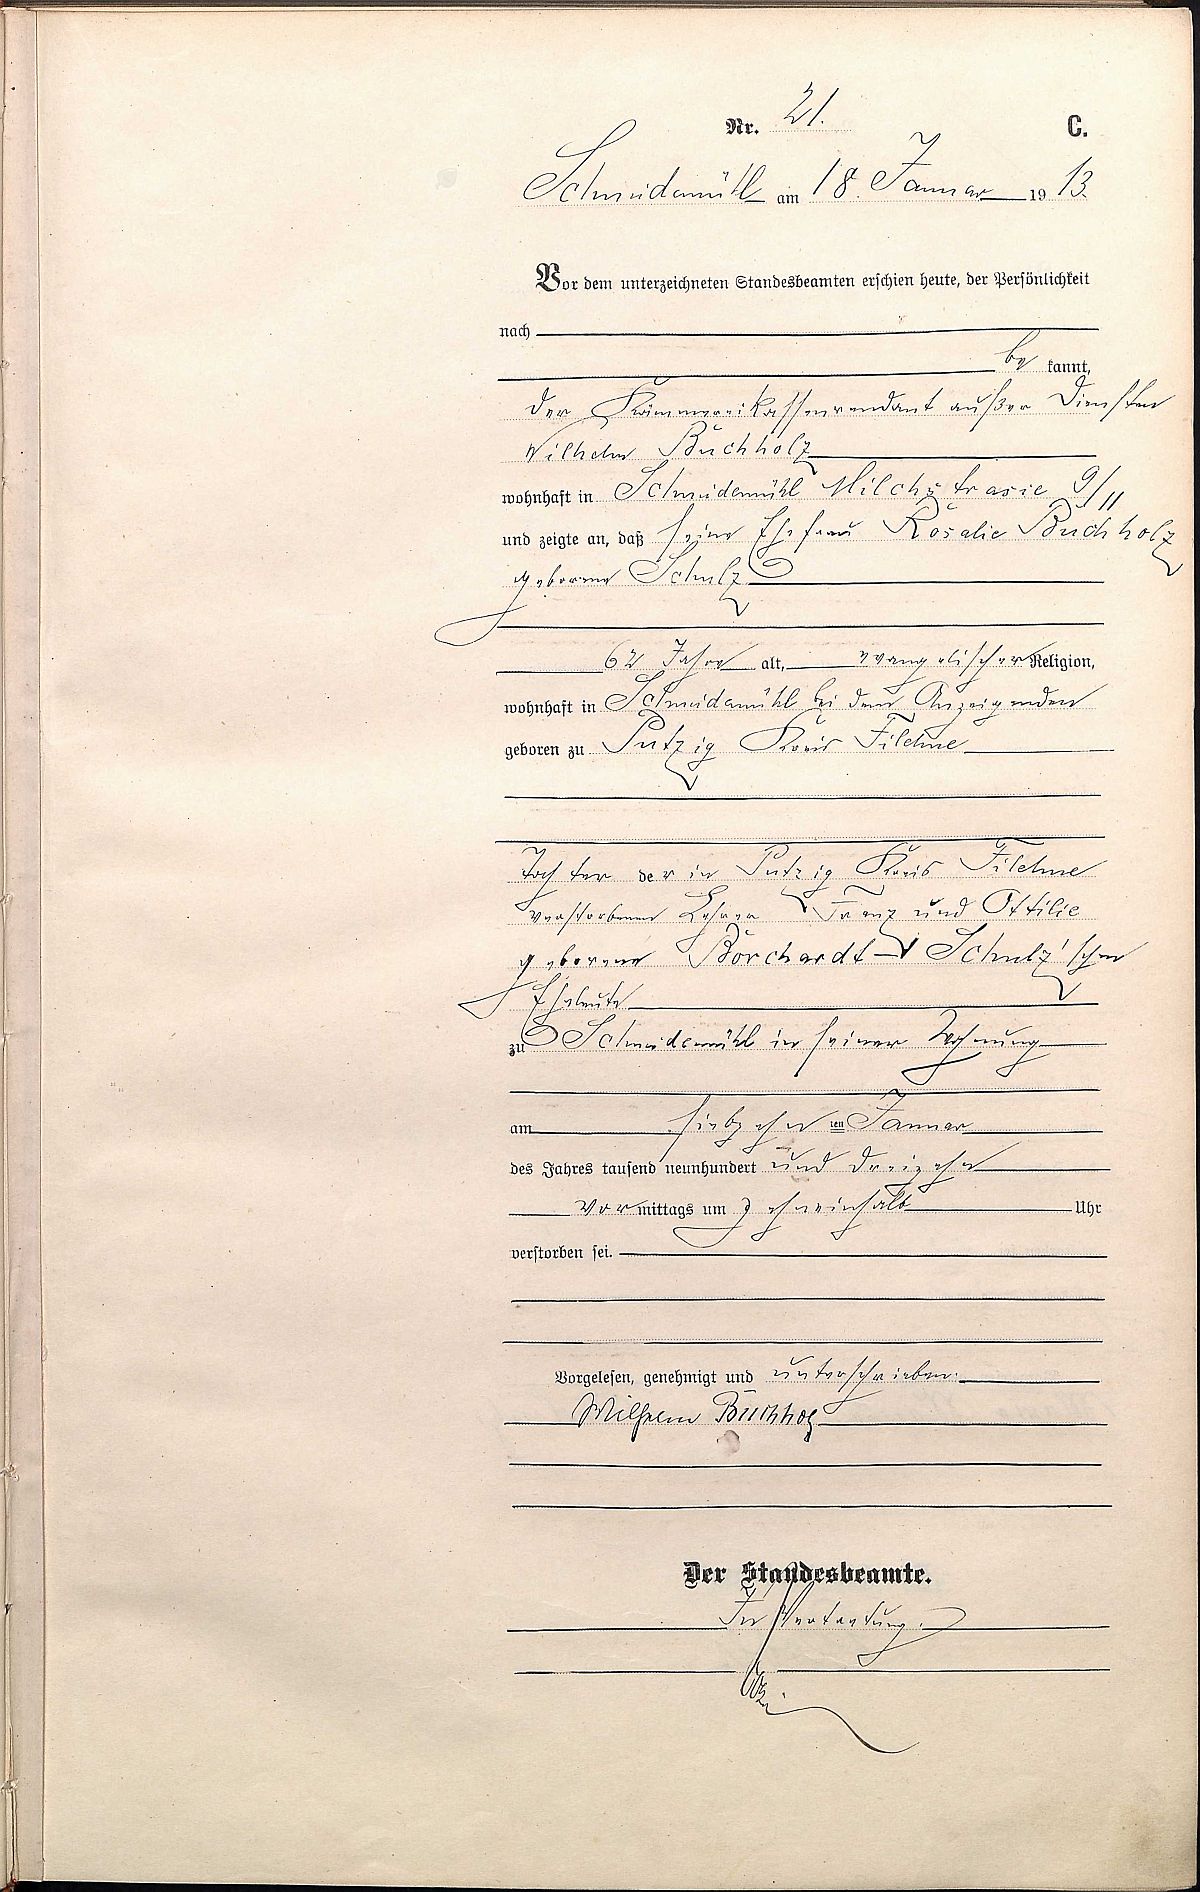 Nr. 21. C.
Schneidemühl am 18. Januar 1913.
Vor dem unterzeichneten Standesbeamten erschien heute, der Persönlichkeit
nach
be kannt,
der Kämmereikassenrendant außer Diensten
Wilhelm Buchholz
wohnhaft in Schneidemühl Milchstrasse 9/11
und zeigte an, daß seine Ehefrau Rosalie Buchholz
geborene Schulz
62 Jahre alt, evangelischer Religion,
wohnhaft in Schneidemühl bei dem Anzeigenden
geboren zu Putzig Kreis Filehne
Tochter der in Putzig Kreis Filehne
verstorbenen Lehrer Franz und Ottilie
geborene Borchardt Schulz'schen
Eheleute
zu Schneidemühl in seiner Wohnung
am siebzehnten Januar
des Jahres tausend neunhundert und dreizehn
vormittags um zehneinhalb Uhr
verstorben sei.
Vorgelesen, genehmigt und unterschrieben.
Wilhelm Buchholz
Der Standesbeamte.
In Vertretung.